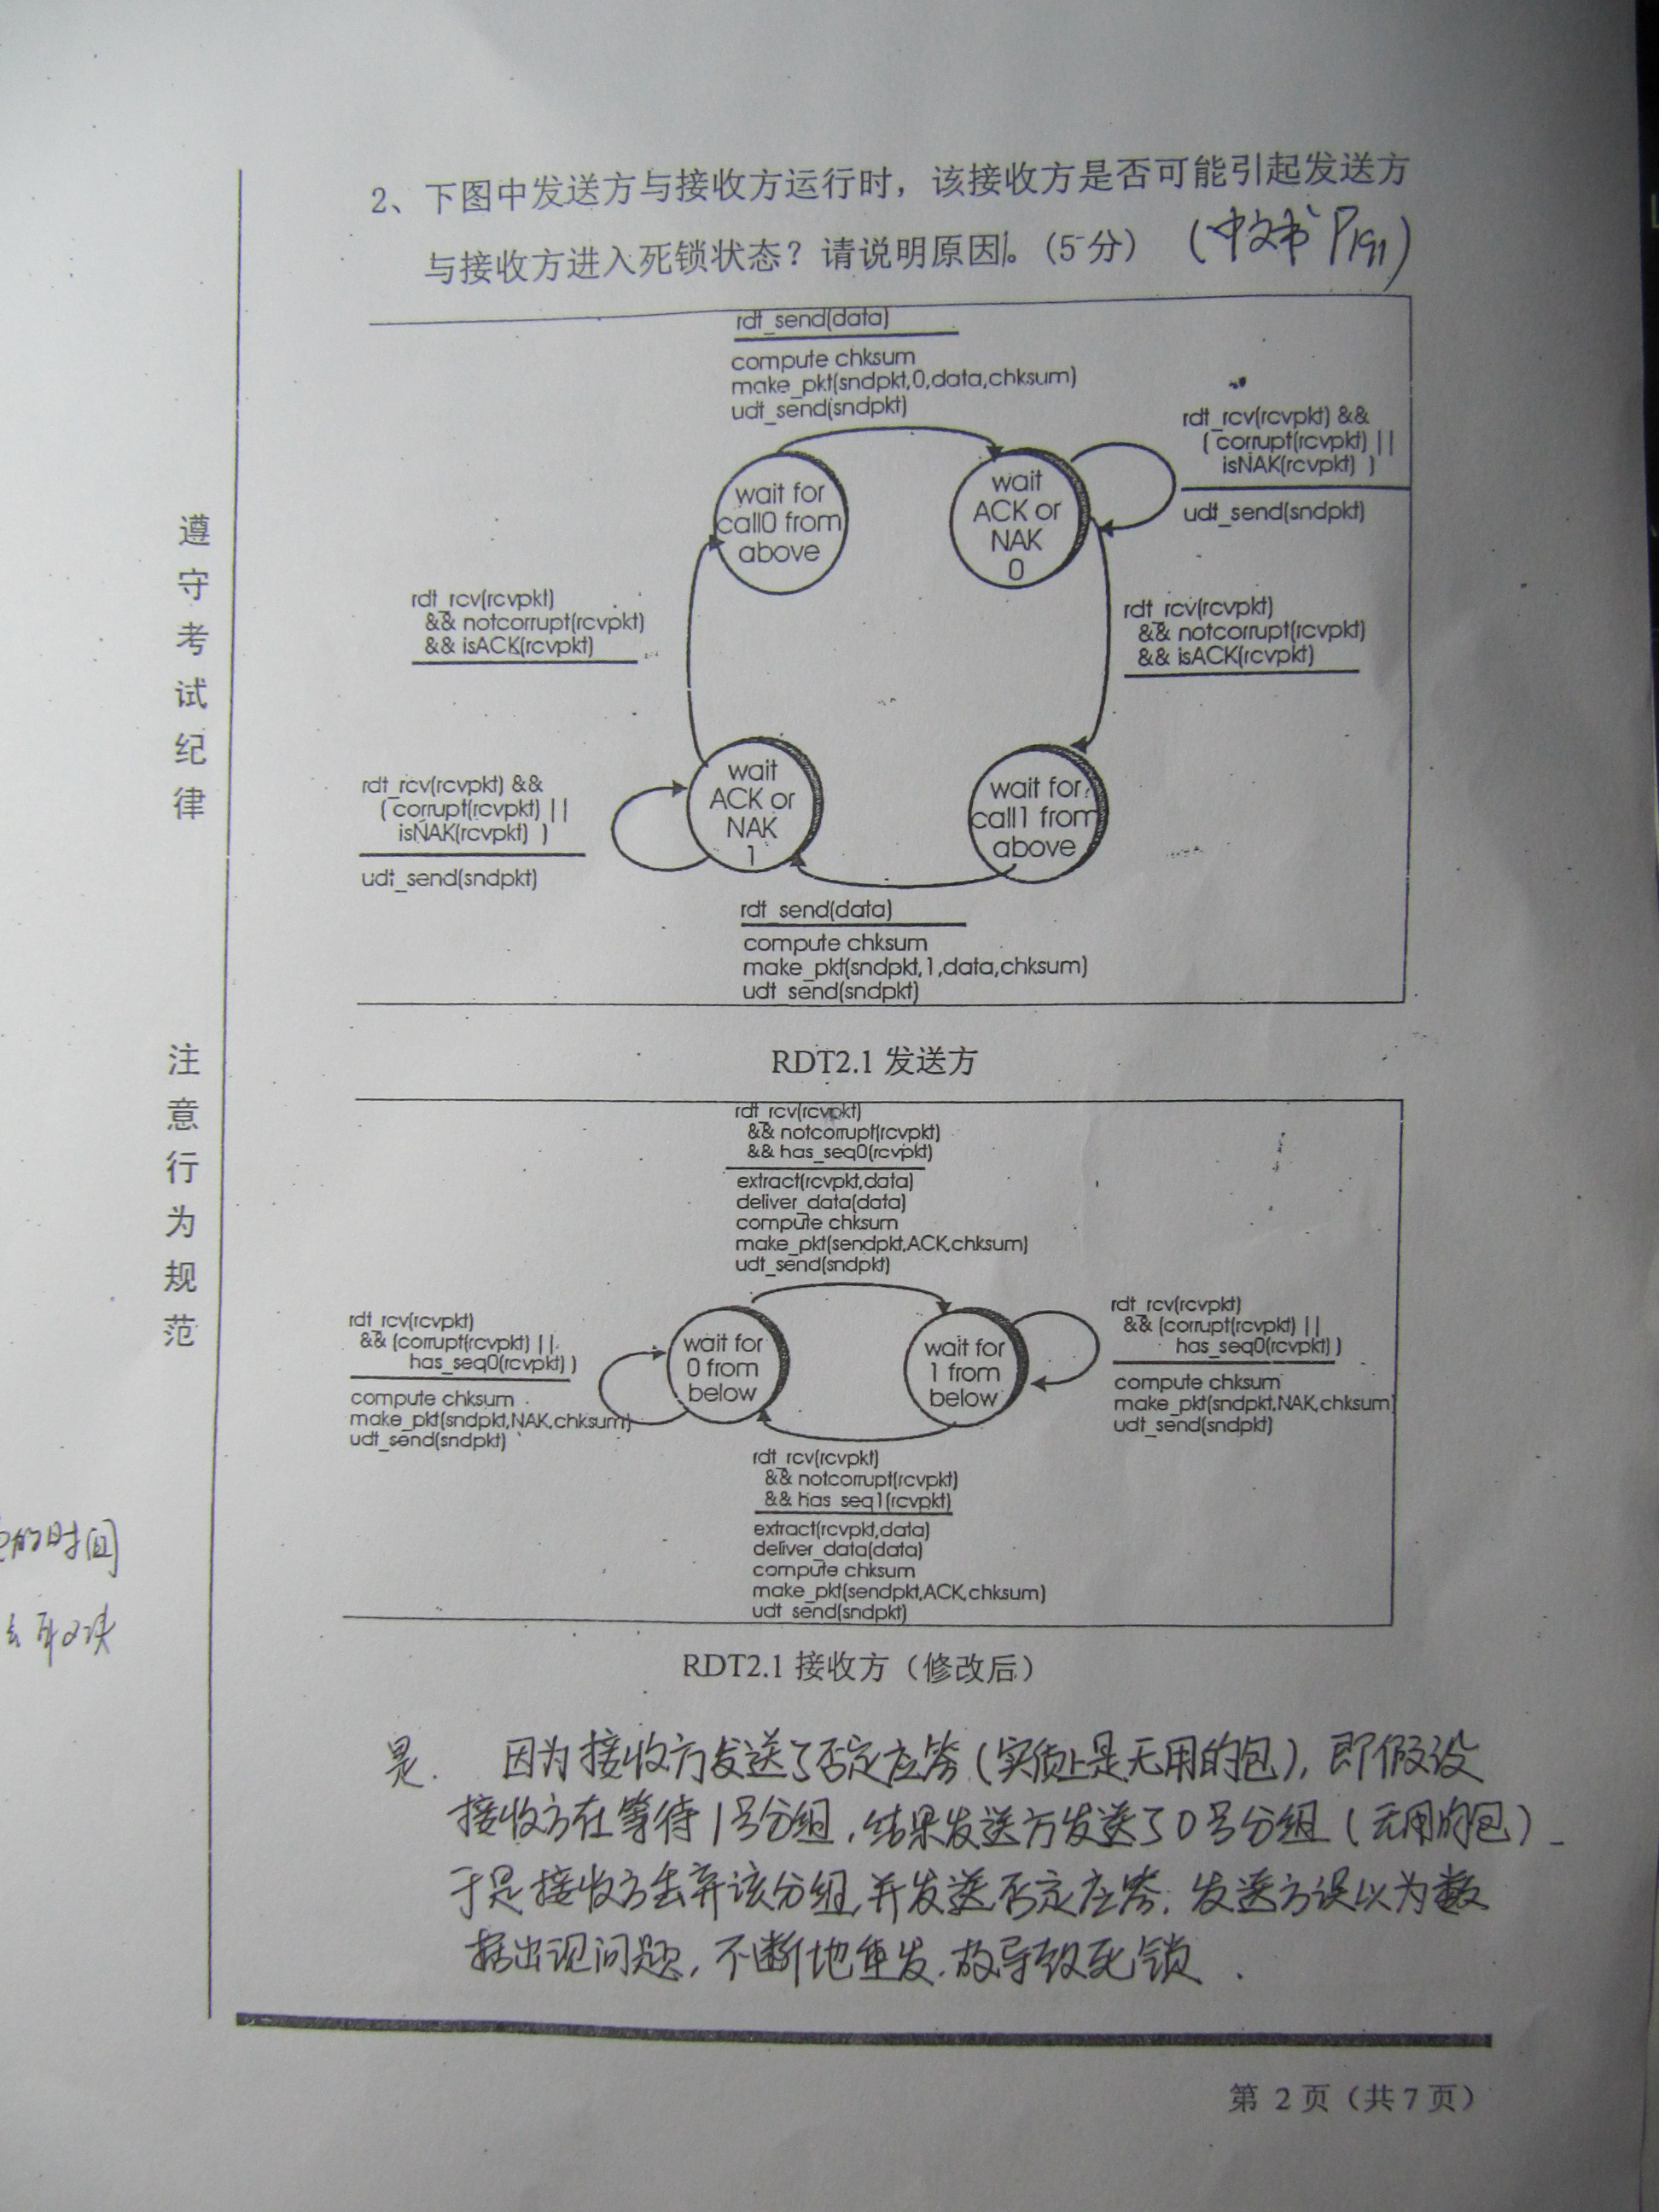 2、下图中发送方与接收方运行时，该接收方是否可能引起发送方
与接收方进入死锁状态？请说明原因。（5分）（中文书 P191）
rdt_send(data)
compute chksum
make_pkt(sndpkt,0,data,chksum)
udt_send(sndpkt)
rdt_rcv(rcvpkt) &&
( corrupt(rcvpkt) ||
isNAK(rcvpkt) )
udt_send(sndpkt)
wait for
call0 from
above
wait
ACK or
NAK
0
rdt_rcv(rcvpkt)
&& notcorrupt(rcvpkt)
&& isACK(rcvpkt)
rdt_rcv(rcvpkt)
&& notcorrupt(rcvpkt)
&& isACK(rcvpkt)
rdt_rcv(rcvpkt) &&
( corrupt(rcvpkt) ||
isNAK(rcvpkt) )
udt_send(sndpkt)
wait
ACK or
NAK
1
wait for
call1 from
above
rdt_send(data)
compute chksum
make_pkt(sndpkt,1,data,chksum)
udt_send(sndpkt)
RDT2.1 发送方
rdt_rcv(rcvpkt)
&& notcorrupt(rcvpkt)
&& has_seq0(rcvpkt)
extract(rcvpkt,data)
deliver_data(data)
compute chksum
make_pkt(sendpkt,ACK,chksum)
udt_send(sndpkt)
rdt_rcv(rcvpkt)
&& (corrupt(rcvpkt) ||
has_seq0(rcvpkt) )
compute chksum
make_pkt(sndpkt,NAK,chksum)
udt_send(sndpkt)
wait for
0 from
below
wait for
1 from
below
rdt_rcv(rcvpkt)
&& (corrupt(rcvpkt) ||
has_seq0(rcvpkt) )
compute chksum
make_pkt(sndpkt,NAK,chksum)
udt_send(sndpkt)
rdt_rcv(rcvpkt)
&& notcorrupt(rcvpkt)
&& has_seq1(rcvpkt)
extract(rcvpkt,data)
deliver_data(data)
compute chksum
make_pkt(sendpkt,ACK,chksum)
udt_send(sndpkt)
RDT2.1 接收方（修改后）
是. 因为接收方发送了否定应答（实质上是无用的包），即假设
接收方在等待1号分组，结果发送方发送了0号分组（无用的包）
于是接收方丢弃该分组，并发送否定应答. 发送方误以为数
据出现问题，不断地重发. 故导致死锁.
第 2 页（共 7 页）
遵守考试纪律
注意行为规范
的时间